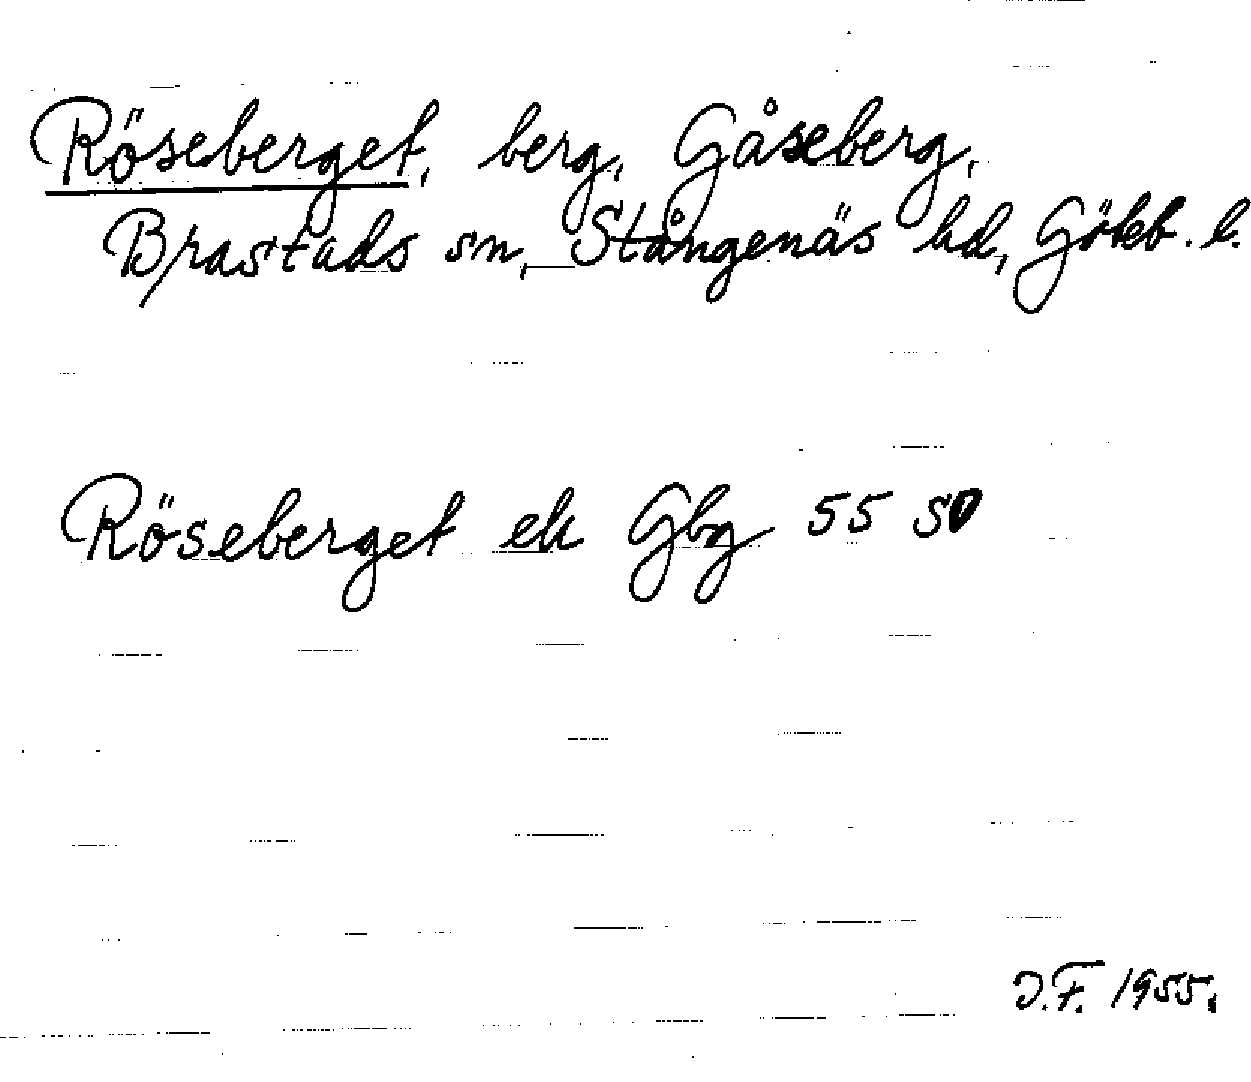 Röseberget, berg, Gåseberg,
Brastads sn, Stångenäs hd, Göteb. l.
Röseberget ek Gbg 55 SO
J.F. 1955.